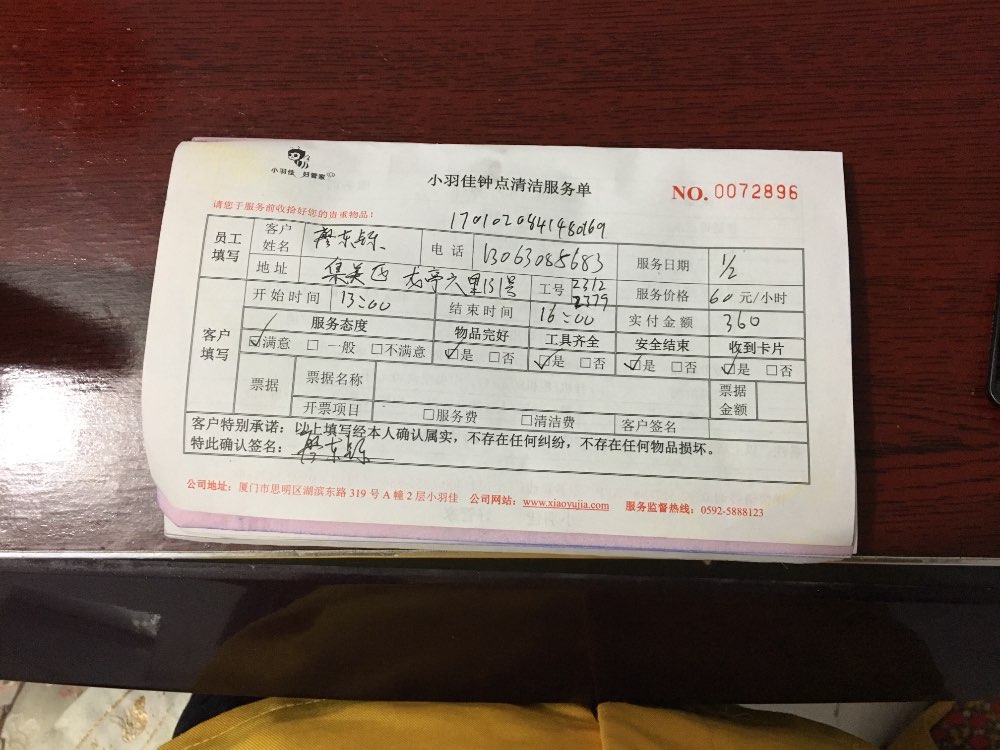 小羽佳 好管家
小羽佳钟点清洁服务单
NO. 0072896
请您于服务前收拾好您的贵重物品！
员工填写 客户姓名 廖东 电话 13063085683 服务日期 1/2
地址 集美区 龙亭六里131号 工号 2312 2379 服务价格 60 元/小时
客户填写 开始时间 13:00 结束时间 16:00 实付金额 360
服务态度 物品完好 工具齐全 安全结束 收到卡片
☑满意 □一般 □不满意 ☑是 □否 ☑是 □否 ☑是 □否 ☑是 □否
票据 票据名称 票据金额
开票项目 □服务费 □清洁费 客户签名
客户特别承诺：以上填写经本人确认属实，不存在任何纠纷，不存在任何物品损坏。
特此确认签名：廖东
公司地址：厦门市思明区湖滨东路 319 号 A 幢 2 层小羽佳 公司网站：www.xiaoyujia.com 服务监督热线：0592-5888123